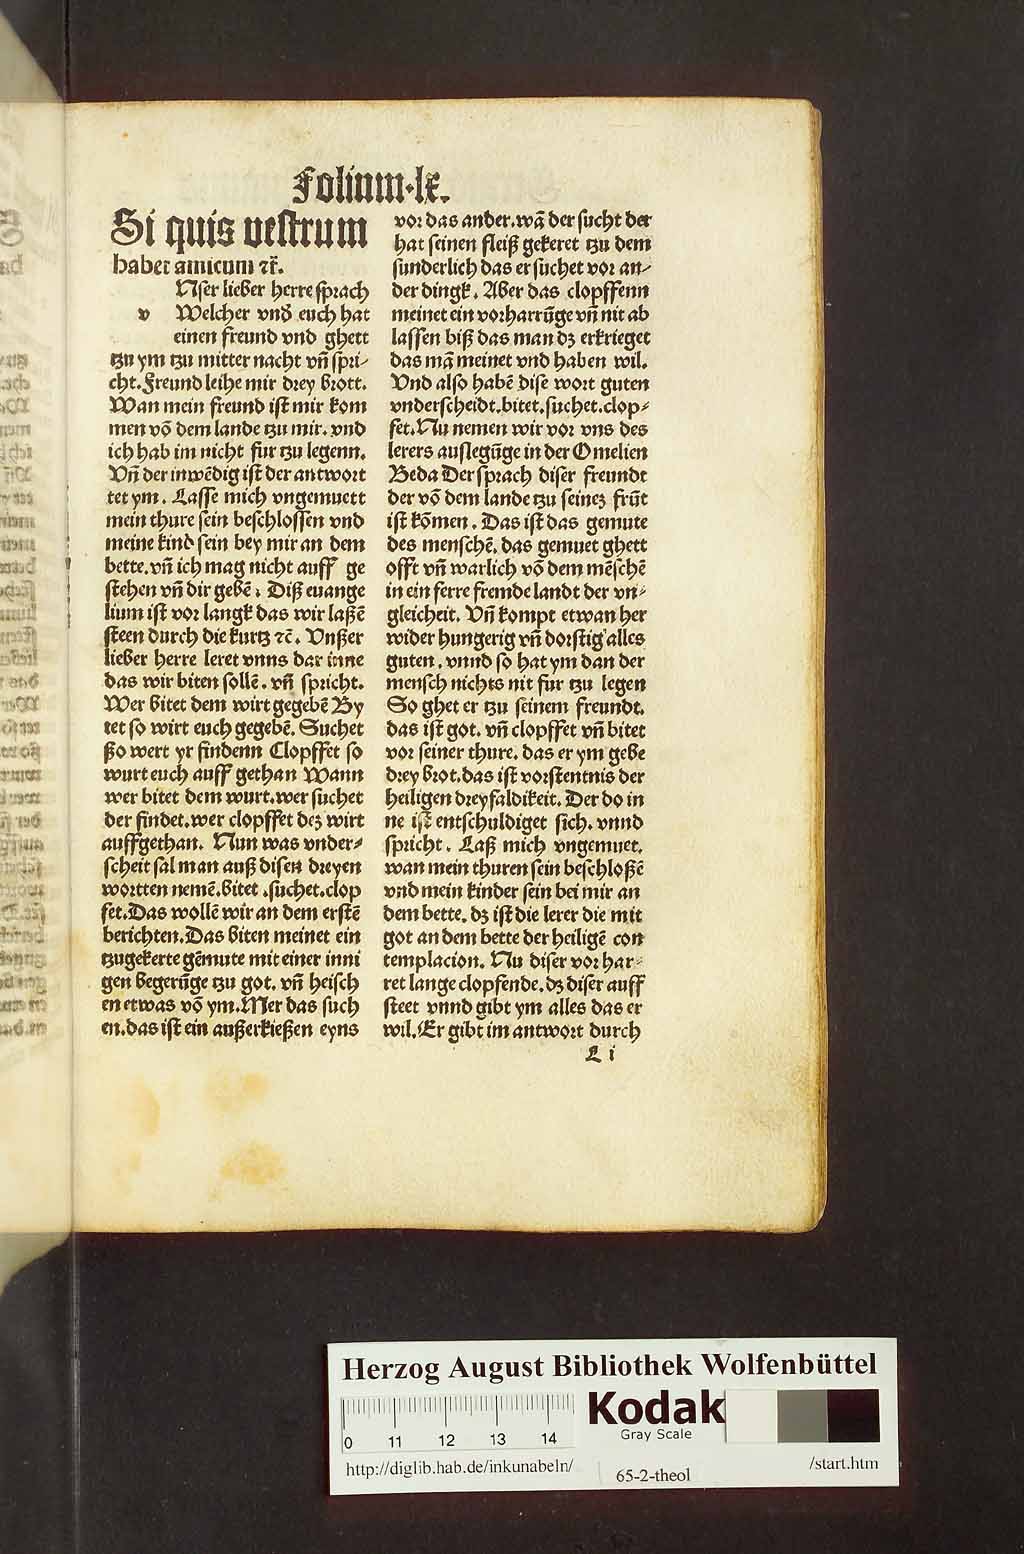 Folium·lx.
Si quis vestrum
habet amicum ⁊c̃.
Nser lieber herre sprach
v Welcher vnd̕ euch hat
einen freund vnd ghett
tzu ym tzu mitter nacht vñ spri⸗
cht. Freund leihe mir drey brott.
Wan mein freund ist mir kom
men võ dem lande tzu mir. vnd
ich hab im nicht fur tzu legenn.
Vñ der inwẽdig ist der antwort
tet ym. Lasse mich vngemuett
mein thure sein beschlossen vnd
meine kind sein bey mir an dem
bette. vñ ich mag nicht auff ge
stehen vñ dir gebẽ. Diß euange
lium ist vor langk das wir laßẽ
steen durch die kurtz ⁊c̃. Vnßer
lieber herre leret vnns dar inne
das wir biten sollẽ. vñ spricht.
Wer bitet dem wirt gegebẽ By
tet so wirt euch gegebẽ. Suchet
ßo wert yr findenn Clopffet so
wurt euch auff gethan Wann
wer bitet dem wurt. wer suchet
der findet. wer clopffet deꝫ wirt
auffgethan. Nun was vnder⸗
scheit sal man auß disen dreyen
wortten nemẽ. bitet .suchet. clop
fet. Das wollẽ wir an dem erstẽ
berichten. Das biten meinet ein
tzugekerte gẽmute mit einer inni
gen begerũge tzu got. vñ heisch
en etwas võ ym. Mer das such
en. das ist ein außerkießen eyns
vor das ander. wã der sucht der
hat seinen fleiß gekeret tzu dem
sunderlich das er suchet vor an⸗
der dingk. Aber das clopffenn
meinet ein vorharrũge vñ nit ab
lassen biß das man dꝫ erkrieget
das mã meinet vnd haben wil.
Vnd also habẽ dise wort guten
vnderscheidt. bitet. suchet. clop⸗
fet. Nu nemen wir vor vns des
lerers auslegũge in der Omelien
Beda Der sprach diser freundt
der võ dem lande tzu seineꝫ frũt
ist kõmen. Das ist das gemute
des menschẽ. das gemuet ghett
offt vñ warlich võ dem mẽschẽ
in ein ferre fremde landt der vn⸗
gleicheit. Vñ kompt etwan her
wider hungerig vñ dorstig alles
guten. vnnd so hat ym dan der
mensch nichts nit fur tzu legen
So ghet er tzu seinem freundt.
das ist got. vñ clopffet vñ bitet
vor seiner thure. das er ym gebe
drey brot. das ist vorstentnis der
heiligen dreyfaldikeit. Der do in
ne ist entschuldiget sich. vnnd
spricht. Laß mich vngemuet.
wan mein thuren sein beschloßẽ
vnd mein kinder sein bei mir an
dem bette. dꝫ ist die lerer die mit
got an dem bette der heiligẽ con
templacion. Nu diser vor har⸗
ret lange clopfende. dꝫ diser auff
steet vnnd gibt ym alles das er
wil. Er gibt im antwort durch
L i
Herzog August Bibliothek Wolfenbüttel
0 11 12 13 14
Kodak
Gray Scale
http://diglib.hab.de/inkunabeln/
65-2-theol
/start.htm